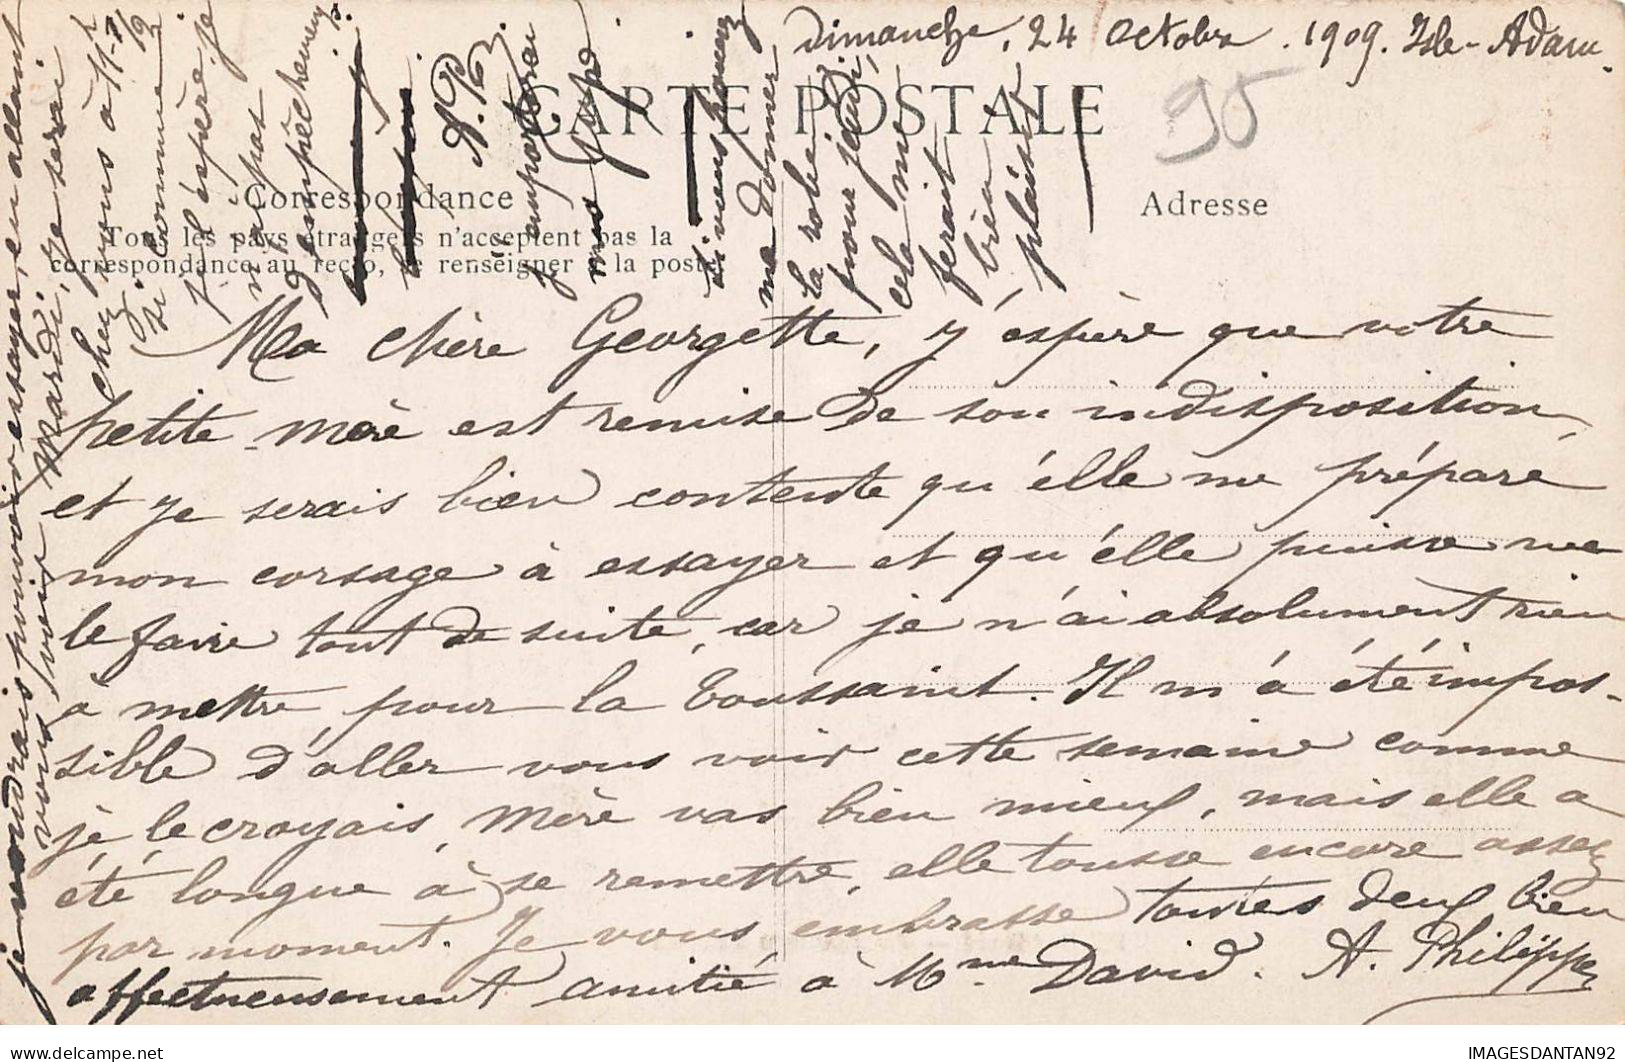 Dimanche, 24 Octobre . 1909. Isle-Adam.
95
CARTE POSTALE
Correspondance
Adresse
Tous les pays étrangers n'acceptent pas la
correspondance au recto, se renseigner à la poste
Ma chère Georgette, j'éspère que votre
petite mère est remise de son indisposition,
et je serais bien contente qu'élle me préparé
mon corsage à essayer et qu'élle puisse me
le faire tout de suite, car je n'ai absolument rien
à mettre pour la Toussaint. Il m'a été impos-
sible d'aller vous voir cette semaine comme
je le croyais, Mère vas bien mieux, mais elle a
été longue à se remettre, elle tousse encore assez
par moment. Je vous embrasse toutes deux bien
affectueusement amitié à Mme David. A. Philippe
je voudrais pouvoir essayer, en allant
vous voir Mardi, je serai
chez vous à 11h 1/2
si comme
j'éspère je
n'ai pas
d'empêchement
A. P.
j'emporterai
ma jupe
si vous pouvez
me donner
la robe
pour jeudi,
cela me
ferait
bien
plaisir
IMAGESDANTAN92